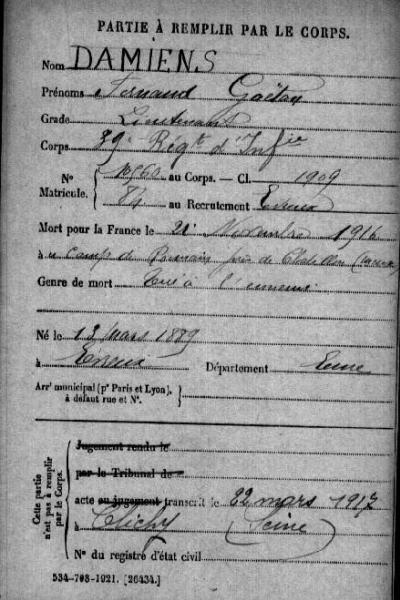 PARTIE À REMPLIR PAR LE CORPS.
Nom DAMIENS
Prénoms Fernand Gaëtan
Grade Lieutenant
Corps 39e Régt d'Infie
N° au Corps. — Cl. 1909
Matricule. 84 au Recrutement Evreux
Mort pour la France le 21 Novembre 1916
à Camp de près de
Genre de mort Tué à l'ennemi
Né le 13 mars 1889
à Evreux Département Eure
Arrt municipal (pr Paris et Lyon), à défaut rue et N°.
Cette partie n'est pas à remplir par le Corps.
Jugement rendu le
par le Tribunal de
acte ou jugement transcrit le 22 mars 1917
à Clichy (Seine)
N° du registre d'état civil
534-708-1921. [26434.]